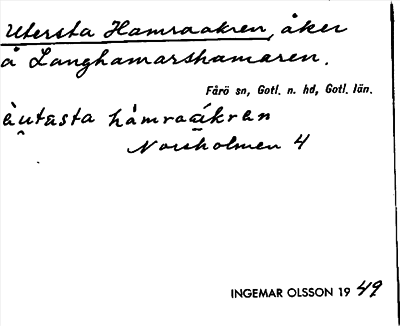 Utersta Hamraakren, åker
å Langhamarshamaren.
Fårö sn, Gotl. n. hd, Gotl. län.
àutæsta håmraákren
Norsholmen 4
INGEMAR OLSSON 19 49